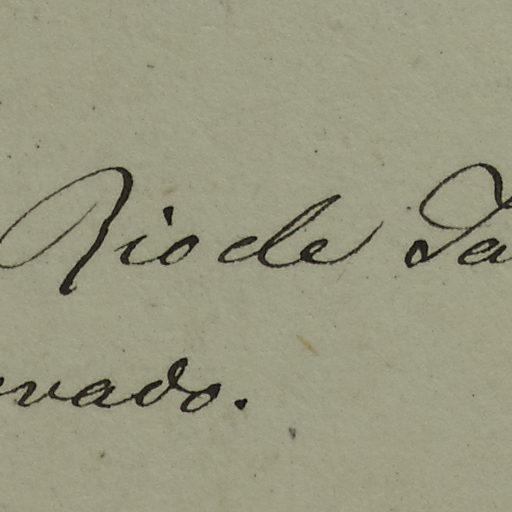 Rio de Ja
rvado.